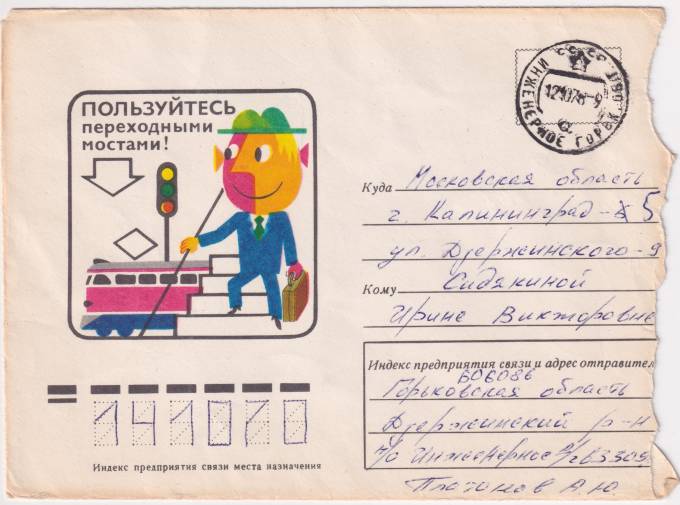 ПОЛЬЗУЙТЕСЬ
переходными
мостами!
СССР ИНЖЕНЕРНОЕ ГОРЬК. ОБЛ.
Куда Московская область
г. Калининград-5
ул. Дзержинского-9
Кому Сидякиной
Ирине Викторовне
Индекс предприятия связи и адрес отправител
606086
Горьковская область
Дзержинский р-н
п/о Инженерное
Платонов А.Ю.
141070
Индекс предприятия связи места назначения